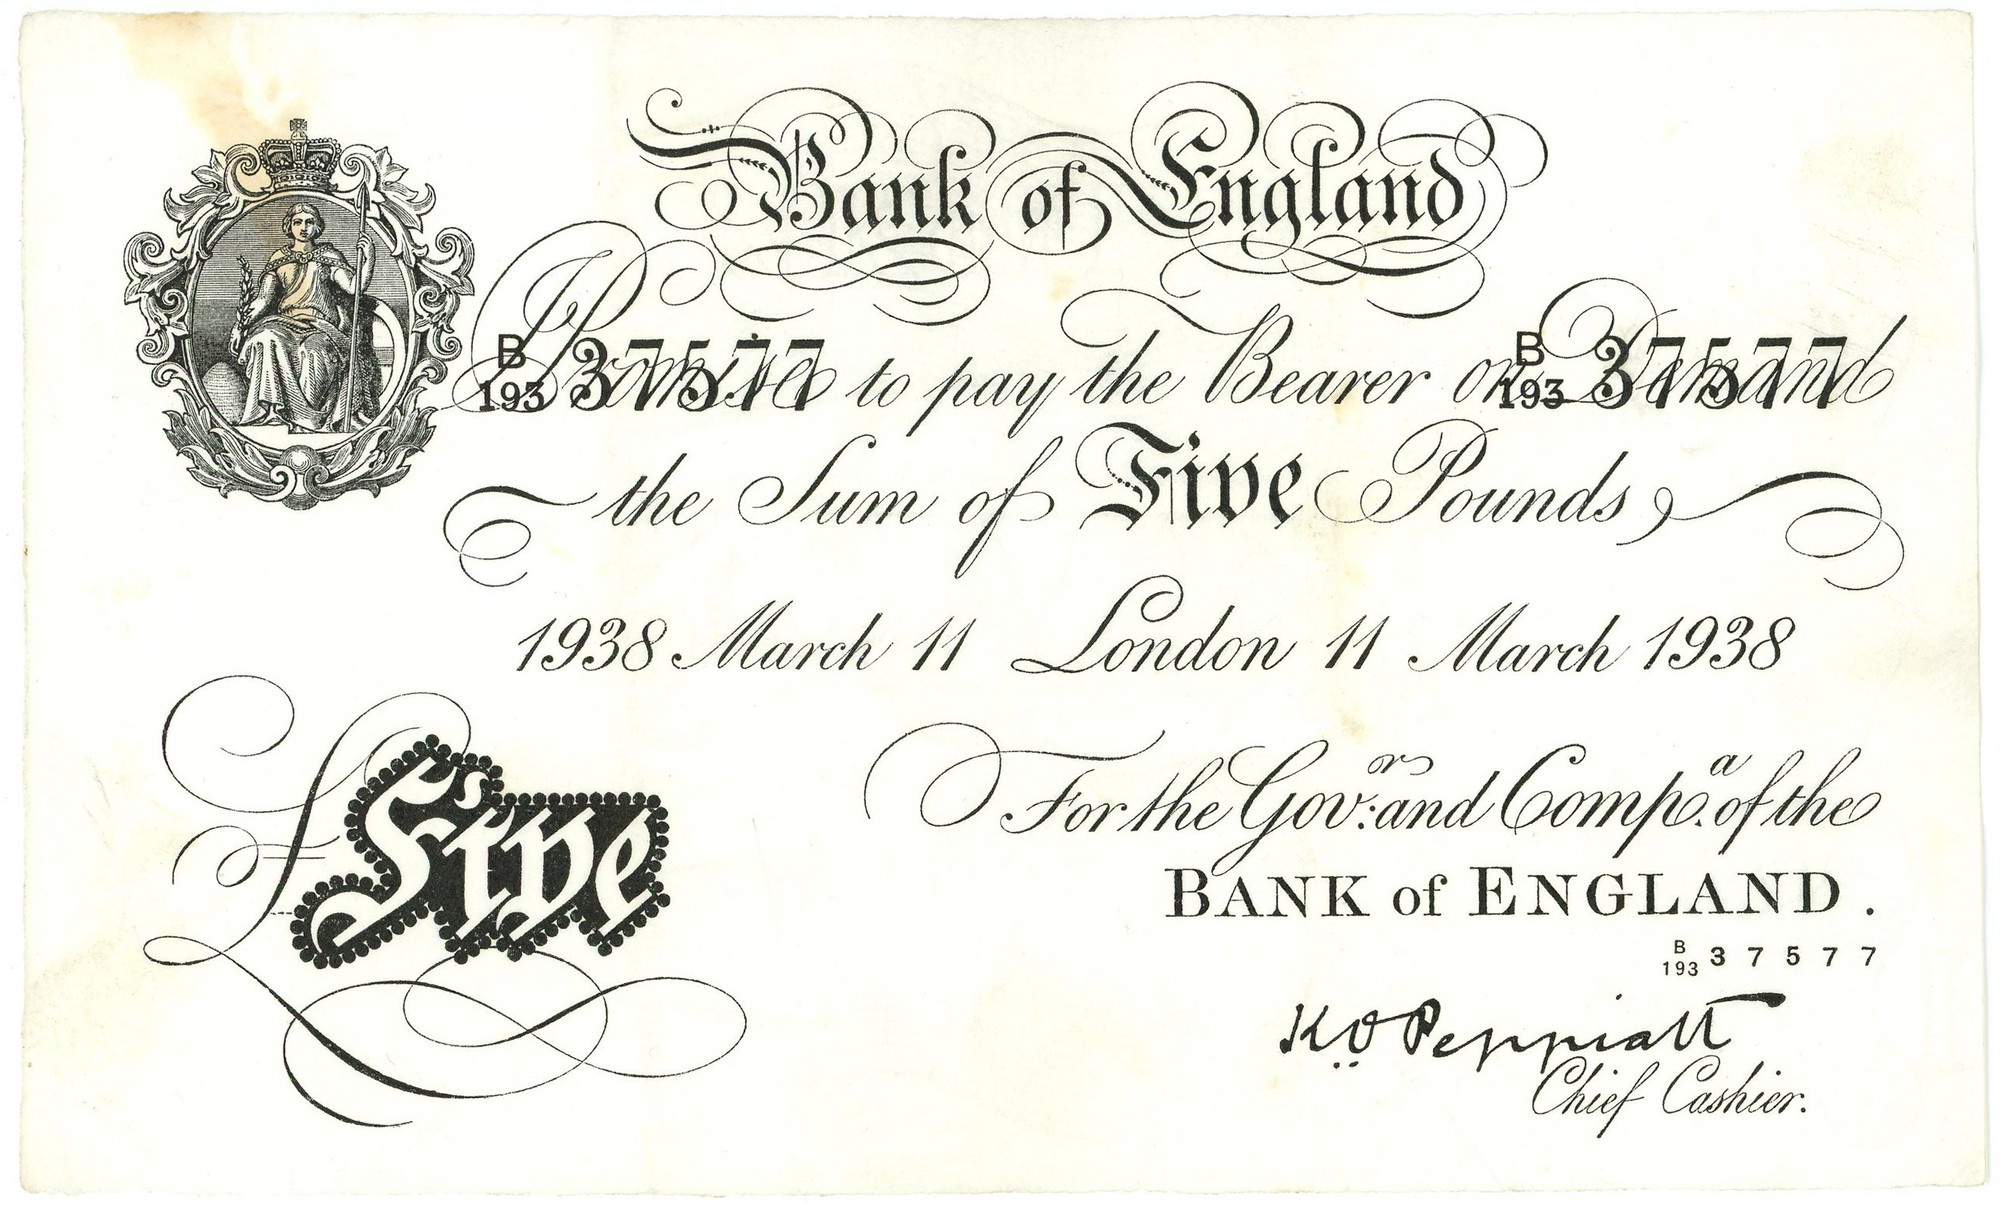 Bank of England
I Promise to pay the Bearer on Demand
B 193 37577 B 193 37577
the Sum of Five Pounds
1938 March 11 London 11 March 1938
£Five
For the Gov:or and Comp.a of the
BANK of ENGLAND.
B 193 37577
K.O. Peppiatt
Chief Cashier.